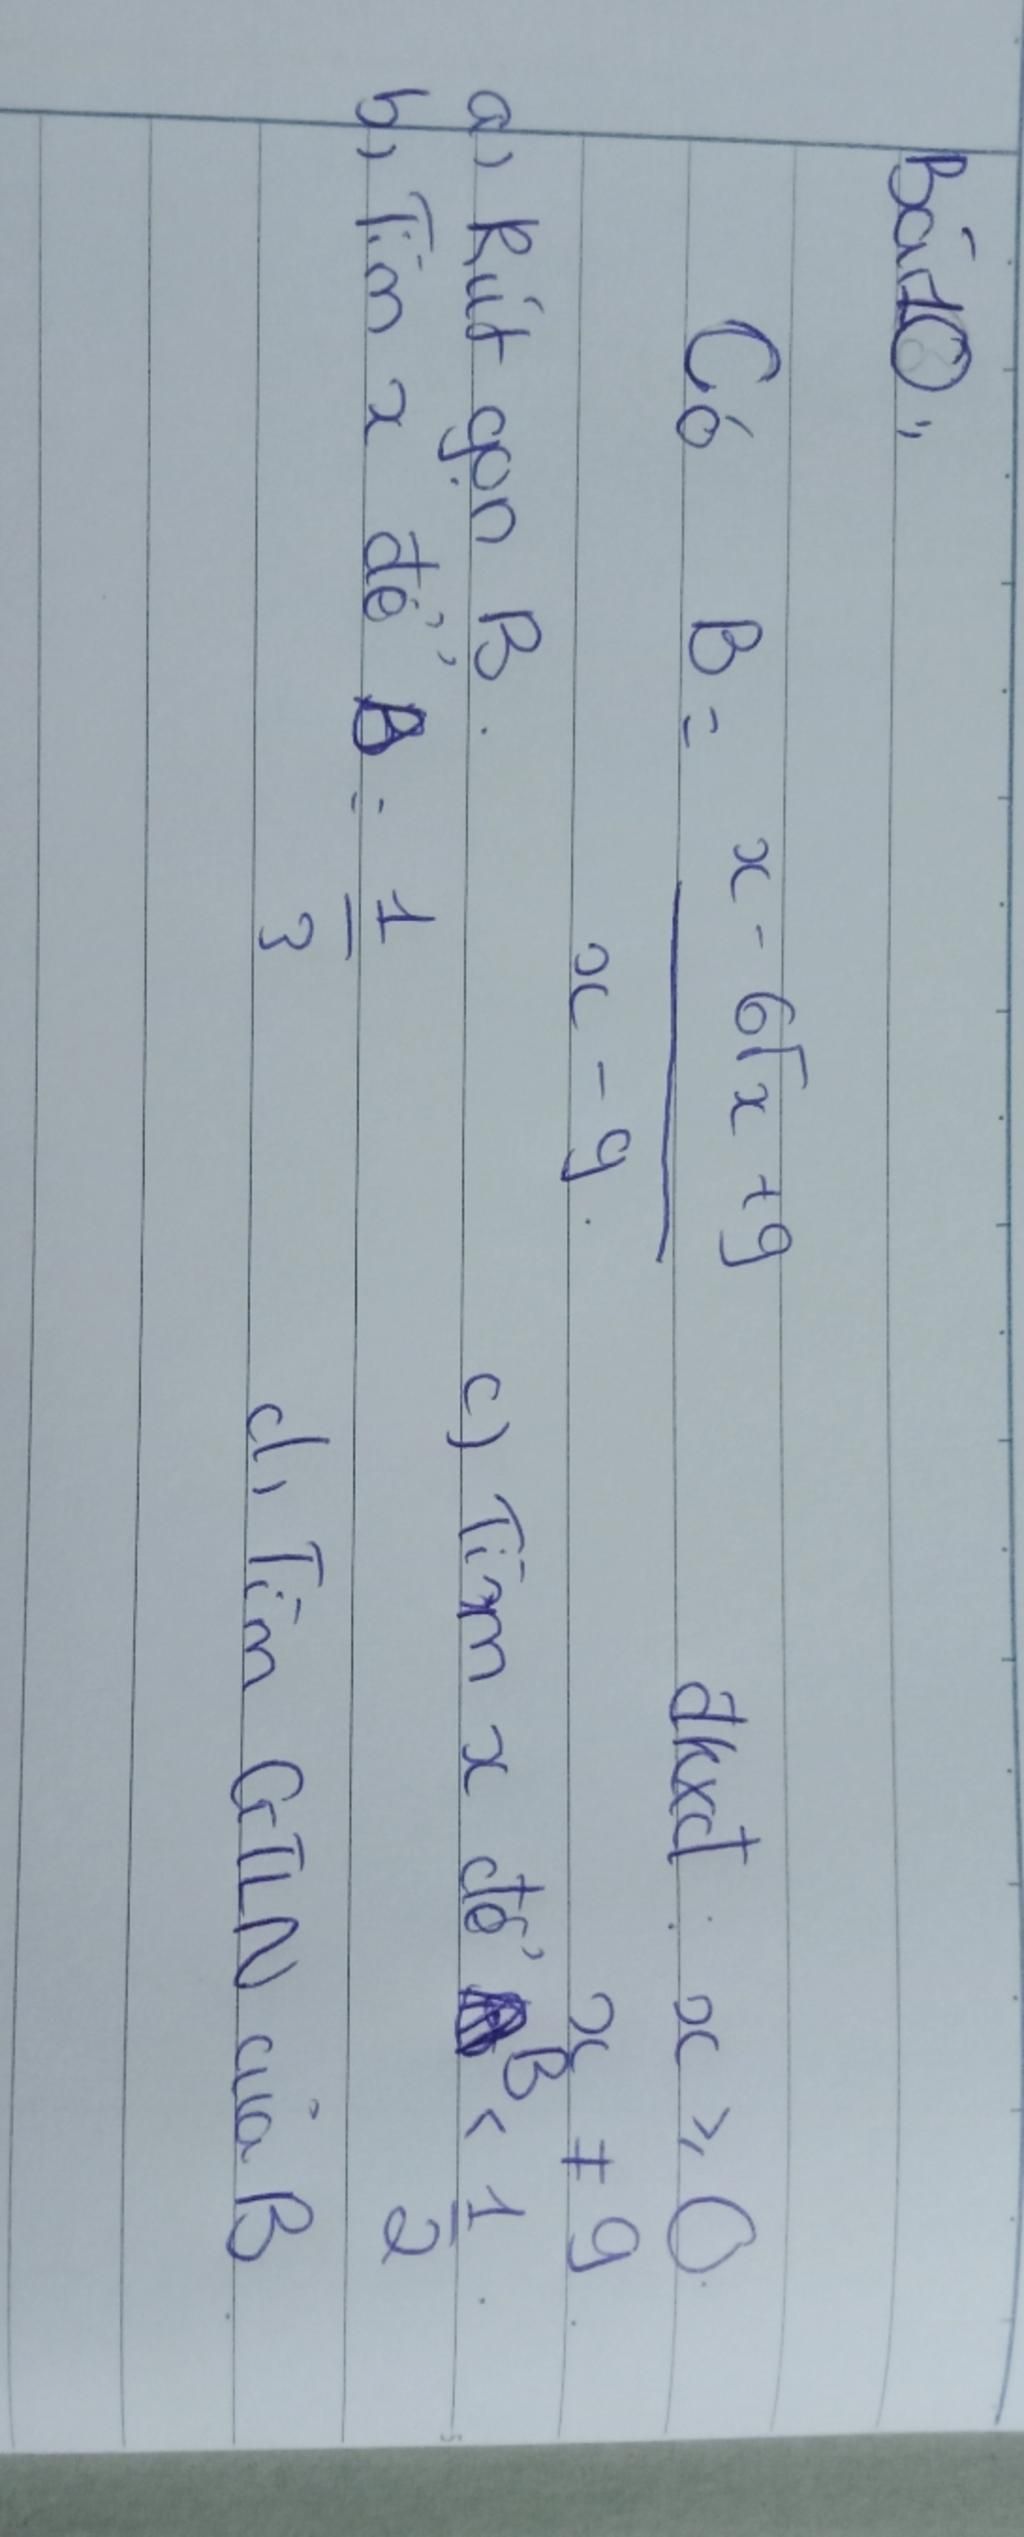 Bài 10,,
Có B = x - 6√x + 9 đkxđ : x ≥ 0.
x - 9. x ≠ 9.
a, Rút gọn B. c) Tìm x để B < 1
b, Tìm x để B = 1 2
3 d, Tìm GTLN của B